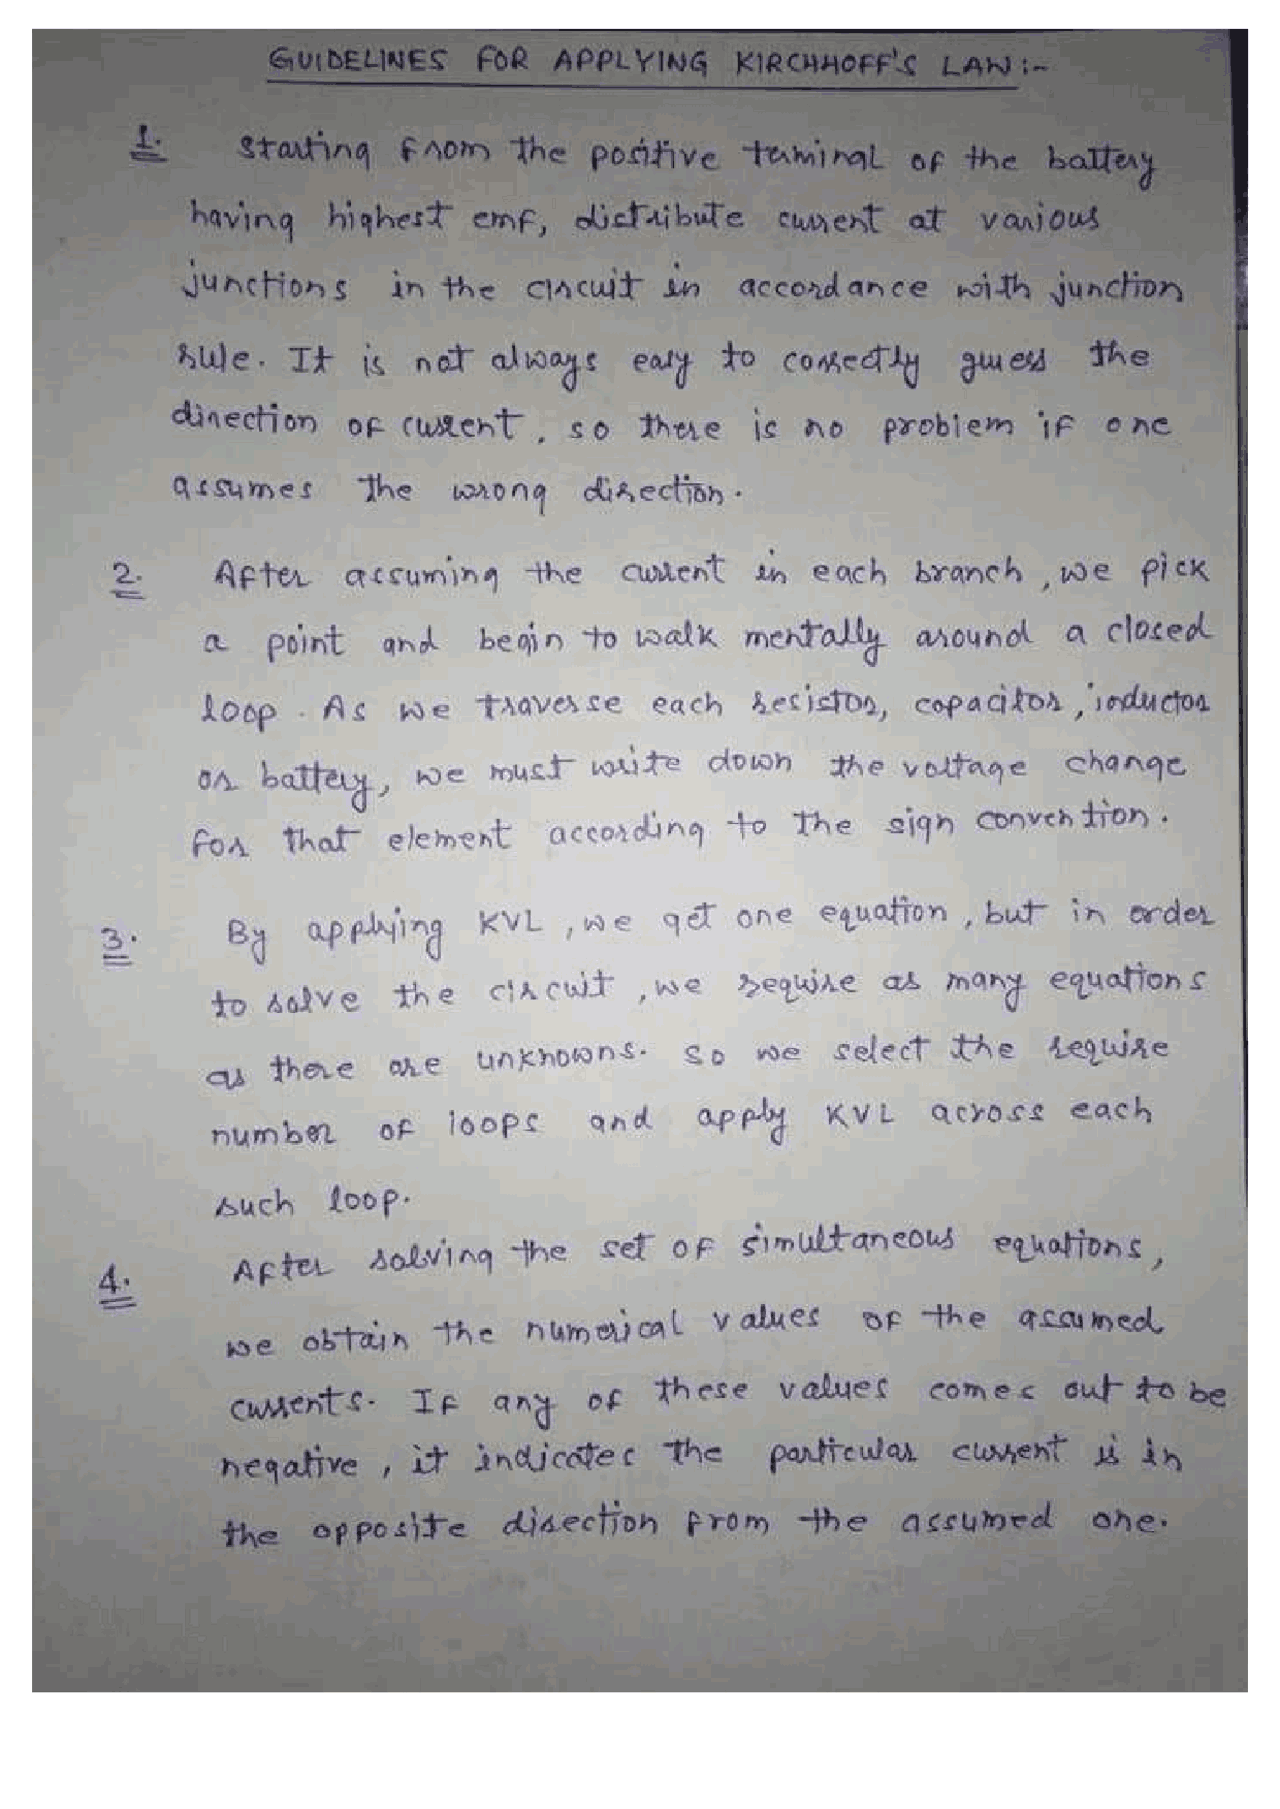 GUIDELINES FOR APPLYING KIRCHHOFF'S LAW :-
1. Starting from the positive terminal of the battery
having highest emf, distribute current at various
junctions in the circuit in accordance with junction
rule. It is not always easy to correctly guess the
direction of current, so there is no problem if one
assumes the wrong direction.
2. After assuming the current in each branch, we pick
a point and begin to walk mentally around a closed
loop. As we traverse each resistor, capacitor, inductor
or battery, we must write down the voltage change
for that element according to the sign convention.
3. By applying KVL, we get one equation, but in order
to solve the circuit, we require as many equations
as there are unknowns. So we select the require
number of loops and apply KVL across each
such loop.
4. After solving the set of simultaneous equations,
we obtain the numerical values of the assumed
currents. If any of these values comes out to be
negative, it indicates the particular current is in
the opposite direction from the assumed one.